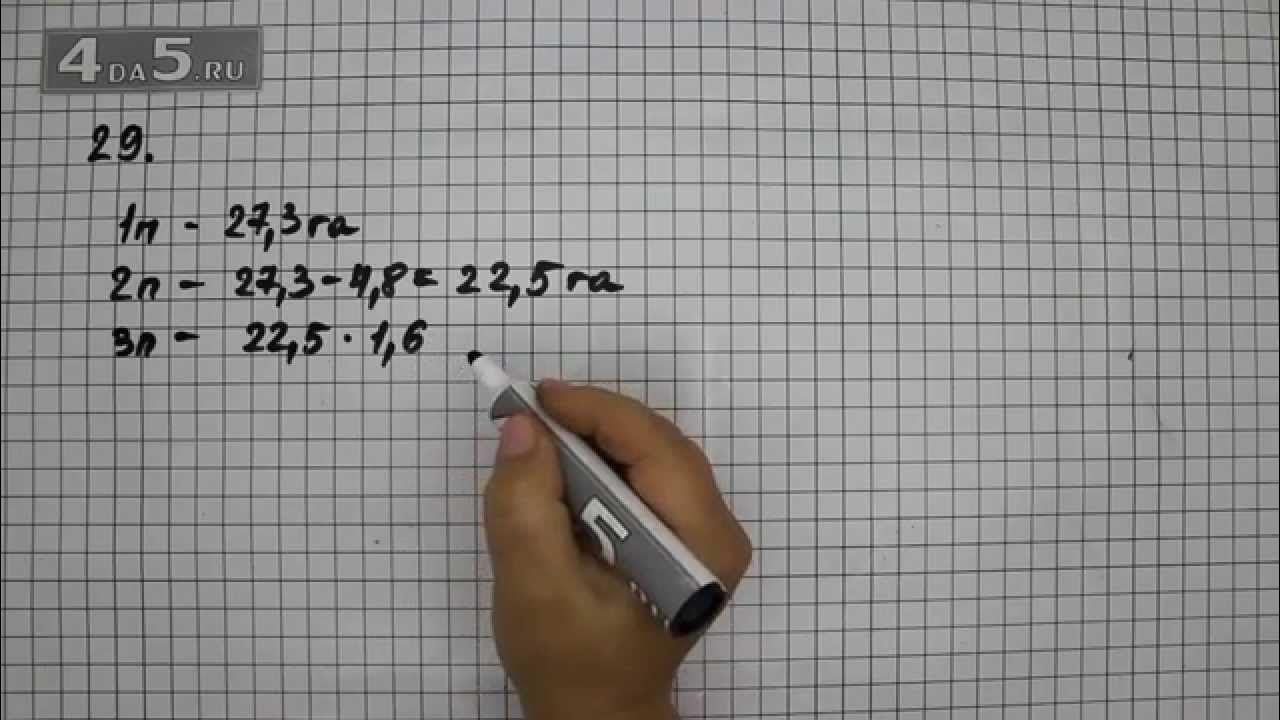 4DA5.RU
29.
1п - 27,3 га
2п - 27,3 - 4,8 = 22,5 га
3п - 22,5 · 1,6
5